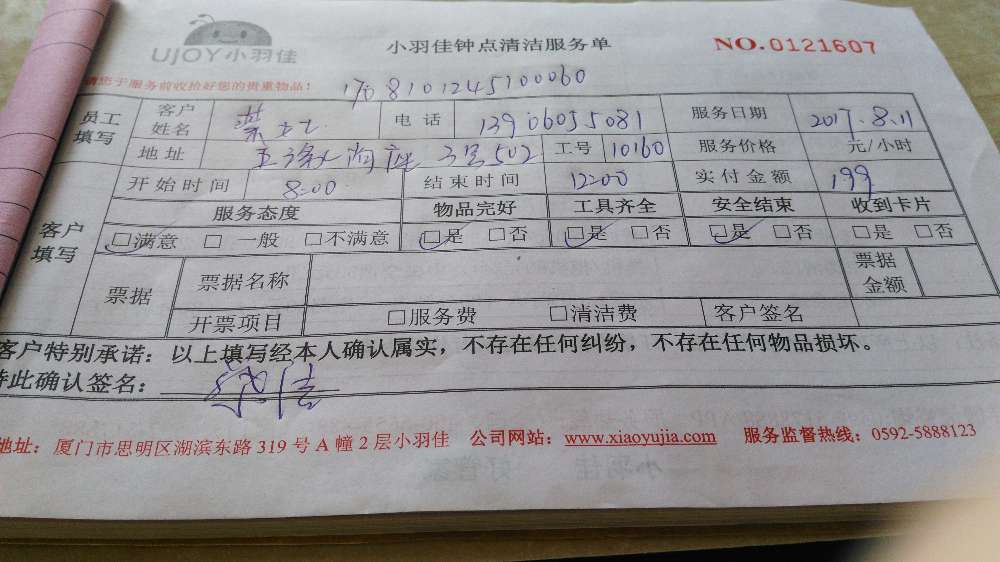 UJOY小羽佳 小羽佳钟点清洁服务单 NO.0121607
请您于服务前收拾好您的贵重物品！ 1708101245100060
员工填写 客户姓名 电话 13906055081 服务日期 2017.8.11
地址 3号502 工号 10160 服务价格 元/小时
开始时间 8:00 结束时间 12:00 实付金额 199
客户填写 服务态度 物品完好 工具齐全 安全结束 收到卡片
☑满意 □一般 □不满意 ☑是 □否 ☑是 □否 ☑是 □否 □是 □否
票据 票据名称 票据金额
开票项目 □服务费 □清洁费 客户签名
客户特别承诺：以上填写经本人确认属实，不存在任何纠纷，不存在任何物品损坏。
特此确认签名：
地址：厦门市思明区湖滨东路319号A幢2层小羽佳 公司网站：www.xiaoyujia.com 服务监督热线：0592-5888123